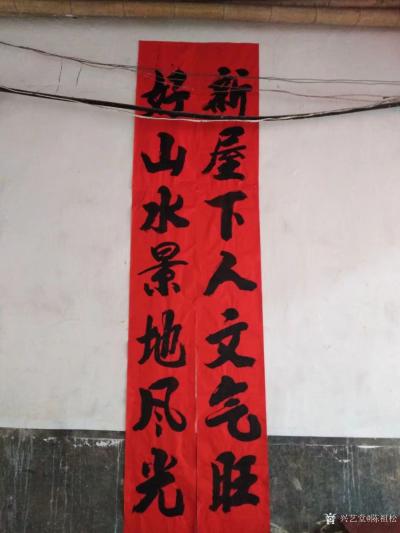 新屋下人文气旺
好山水景地风光
兴艺堂@陈祖松